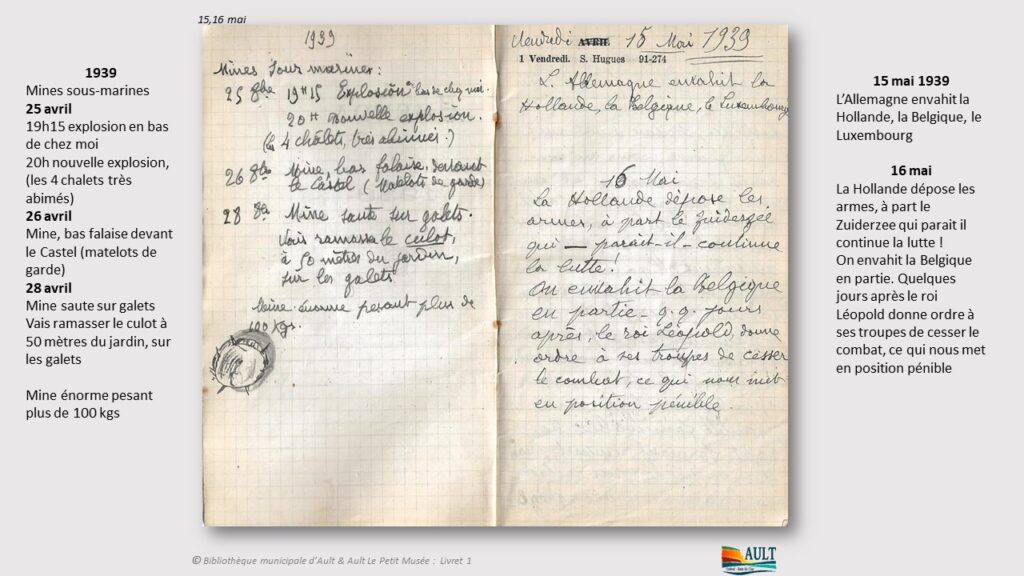 15,16 mai
1939
Mines sous-marines
25 avril
19h15 explosion en bas
de chez moi
20h nouvelle explosion,
(les 4 chalets très
abimés)
26 avril
Mine, bas falaise devant
le Castel (matelots de
garde)
28 avril
Mine saute sur galets
Vais ramasser le culot à
50 mètres du jardin, sur
les galets
Mine énorme pesant
plus de 100 kgs
1939
Mines sous marines :
25 8bre 19H15 Explosion bas de chez moi.
20H nouvelle explosion.
(les 4 châlets, très abimés.)
26 8bre Mine, bas falaise, devant
le Castel (Matelots de garde)
28 8bre Mine saute sur galets.
Vais ramasser le culot,
à 50 mètres du jardin,
sur les galets.
Mine énorme pesant plus de
100 Kgs.
Vendredi AVRIL 15 Mai 1939
1 Vendredi. S. Hugues 91-274
L'Allemagne envahit la
Hollande, la Belgique, le Luxembourg
16 Mai
La Hollande dépose les
armes, à part le Zuiderzée
qui — parait-il — continue
la lutte !
On envahit la Belgique
en partie. q.q. jours
après, le roi Léopold, donne
ordre à ses troupes de cesser
le combat, ce qui nous met
en position pénible.
15 mai 1939
L'Allemagne envahit la
Hollande, la Belgique, le
Luxembourg
16 mai
La Hollande dépose les
armes, à part le
Zuiderzee qui parait il
continue la lutte !
On envahit la Belgique
en partie. Quelques
jours après le roi
Léopold donne ordre à
ses troupes de cesser le
combat, ce qui nous met
en position pénible
© Bibliothèque municipale d'Ault & Ault Le Petit Musée : Livret 1
AULT